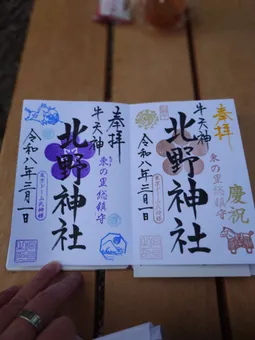 奉拝
牛天神
北野神社
東の里総鎮守
令和八年三月一日
奉拝
牛天神
北野神社
東の里総鎮守
慶祝
令和八年三月一日